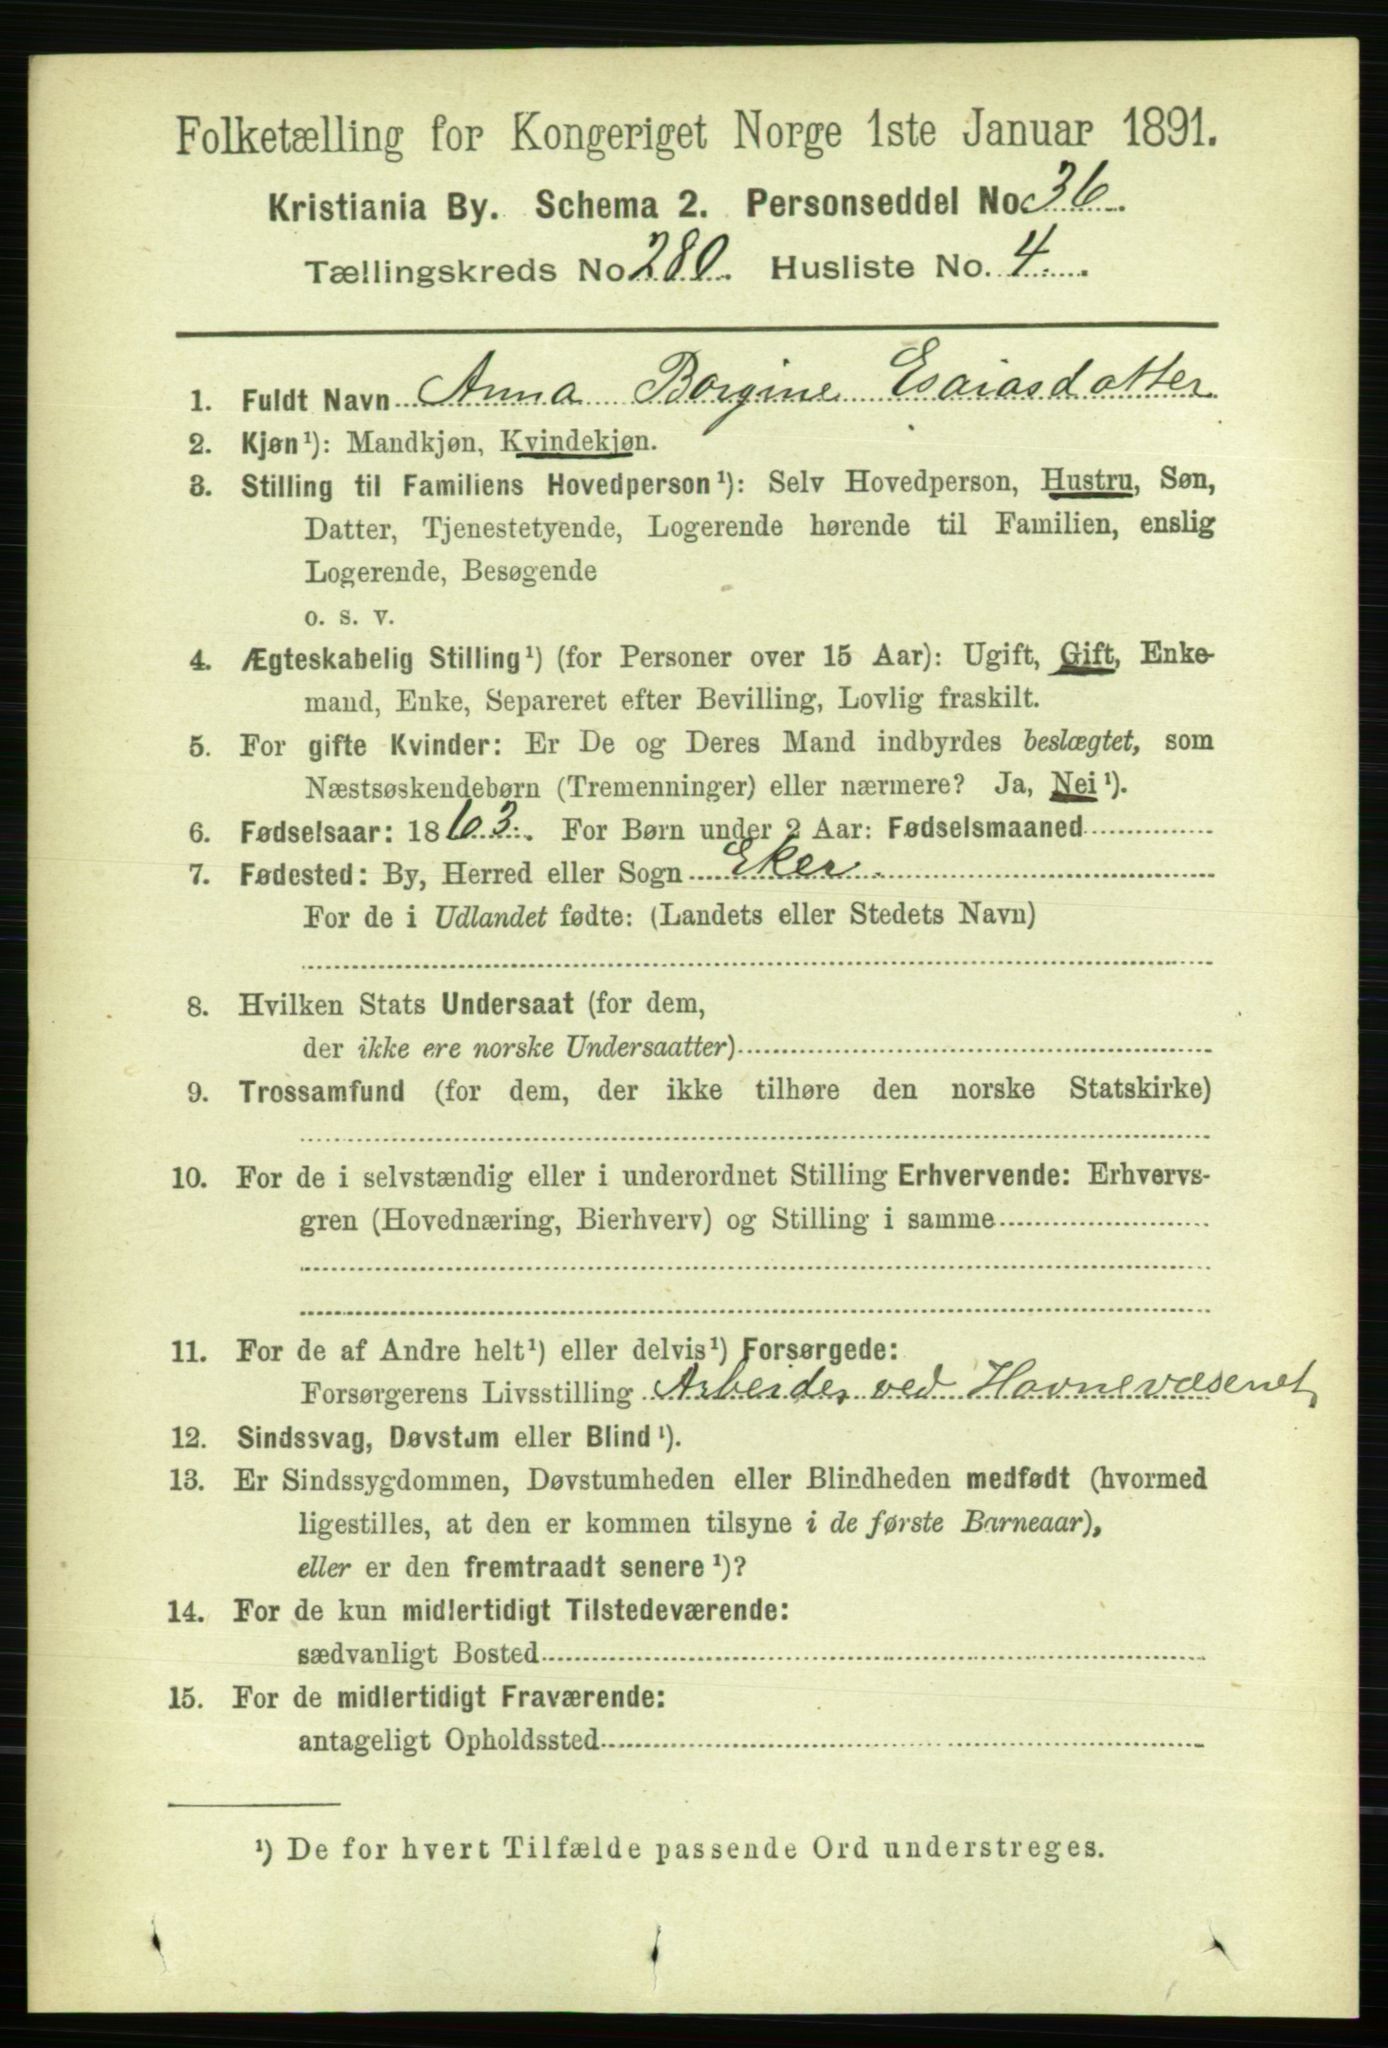 Folketælling for Kongeriget Norge 1ste Januar 1891.
Kristiania By. Schema 2. Personseddel No 36.
Tællingskreds No 280. Husliste No. 4.
1. Fuldt Navn Anna Borgine Esaiasdatter
2. Kjøn¹): Mandkjøn, Kvindekjøn.
3. Stilling til Familiens Hovedperson¹): Selv Hovedperson, Hustru, Søn,
Datter, Tjenestetyende, Logerende hørende til Familien, enslig
Logerende, Besøgende
o. s. v.
4. Ægteskabelig Stilling¹) (for Personer over 15 Aar): Ugift, Gift, Enke-
mand, Enke, Separeret efter Bevilling, Lovlig fraskilt.
5. For gifte Kvinder: Er De og Deres Mand indbyrdes beslægtet, som
Næstsøskendebørn (Tremenninger) eller nærmere? Ja, Nei¹).
6. Fødselsaar: 1863. For Børn under 2 Aar: Fødselsmaaned
7. Fødested: By, Herred eller Sogn Eker.
For de i Udlandet fødte: (Landets eller Stedets Navn)
8. Hvilken Stats Undersaat (for dem,
der ikke ere norske Undersaatter)
9. Trossamfund (for dem, der ikke tilhøre den norske Statskirke)
10. For de i selvstændig eller i underordnet Stilling Erhvervende: Erhvervs-
gren (Hovednæring, Bierhverv) og Stilling i samme
11. For de af Andre helt¹) eller delvis¹) Forsørgede:
Forsørgerens Livsstilling Arbeider ved Havnevæsenet
12. Sindssvag, Døvstum eller Blind¹).
13. Er Sindssygdommen, Døvstumheden eller Blindheden medfødt (hvormed
ligestilles, at den er kommen tilsyne i de første Barneaar),
eller er den fremtraadt senere¹)?
14. For de kun midlertidigt Tilstedeværende:
sædvanligt Bosted
15. For de midlertidigt Fraværende:
antageligt Opholdssted
¹) De for hvert Tilfælde passende Ord understreges.